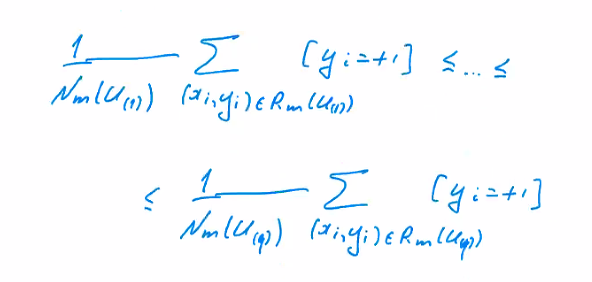 1/N_m(u_(1)) ∑_{(x_i,y_i)∈R_m(u_(1))} [y_i=+1] ≤ ... ≤
≤ 1/N_m(u_(q)) ∑_{(x_i,y_i)∈R_m(u_(q))} [y_i=+1]